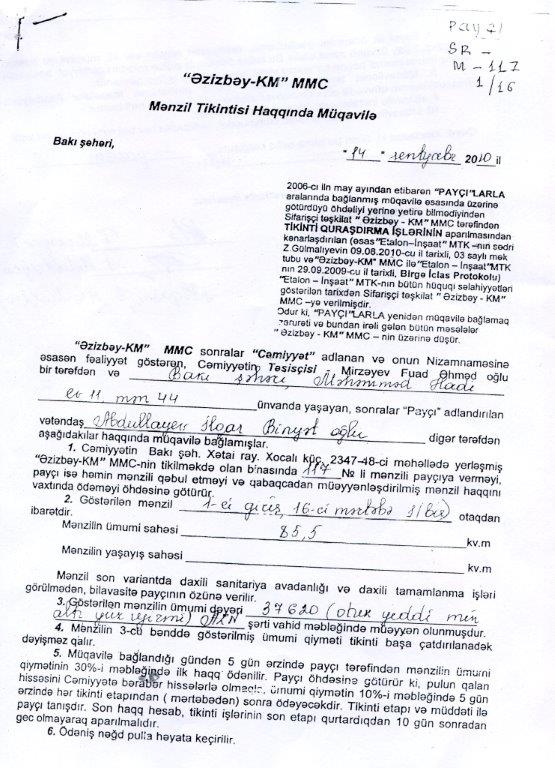 Pay 21
SR -
M - 117
1/16
“Əzizbəy-KM” MMC
Mənzil Tikintisi Haqqında Müqavilə
Bakı şəhəri,
“ 14 ” sentyabr 2010 il
2006-cı ilin may ayından etibarən “PAYÇI”LARLA
aralarında bağlanmış müqavilə əsasında üzərinə
götürdüyü öhdəliyi yerinə yetirə bilmədiyindən
Sifarişçi təşkilat “ Əzizbəy - KM” MMC tərəfindən
TİKİNTİ QURAŞDIRMA İŞLƏRİNİN aparılmasından
kənarlaşdırılan (əsas“Etalon–İnşaat” MTK –nın sədri
Z.Gülmaliyevin 09.08.2010-cu il tarixli, 03 saylı mək
tubu və“Əzizbəy-KM” MMC ilə“Etalon – İnşaat”MTK
nın 29.09.2009-cu il tarixli, Birgə İclas Protokolu)
“Etalon – İnşaat” MTK-nın bütün hüquqi səlahiyyətləri
göstərilən tarixdən Sifarişçi təşkilat “ Əzizbəy - KM”
MMC –yə verilmişdir.
Odur ki, “PAYÇI”LARLA yenidən müqavilə bağlamaq
zərurəti və bundan irəli gələn bütün məsələlər
“ Əzizbəy - KM” MMC – nin üzərinə düşür.
“Əzizbəy-KM” MMC sonralar “Cəmiyyət” adlanan və onun Nizamnaməsinə
əsasən fəaliyyət göstərən, Cəmiyyətin Təsisçisi - Mirzəyev Fuad Əhməd oğlu
bir tərəfdən və Bakı şəhəri, Məhəmməd Hadi
ev 11 mm 44 ünvanda yaşayan, sonralar “Payçı” adlandırılan
vətəndaş Abdullayev İlqar Binyət oğlu digər tərəfdən
aşağıdakılar haqqında müqavilə bağlamışlar.
1. Cəmiyyətin Bakı şəh. Xətai ray. Xocalı küç. 2347-48-ci məhəllədə yerləşmiş
“Əzizbəy-KM” MMC-nin tikilməkdə olan binasında 117 № li mənzili payçıya verməyi,
payçı isə həmin mənzili qəbul etməyi və qabaqcadan müəyyənləşdirilmiş mənzil haqqını
vaxtında ödəməyi öhdəsinə götürür.
2. Göstərilən mənzil 1-ci giriş, 16-cı mərtəbə 1(bir) otaqdan
ibarətdir.
Mənzilin ümumi sahəsi 85,5 kv.m
Mənzilin yaşayış sahəsi kv.m
Mənzil son variantda daxili sanitariya avadanlığı və daxili tamamlanma işləri
görülmədən, bilavasitə payçının özünə verilir.
3. Göstərilən mənzilin ümumi dəyəri 37620 (otuz yeddi min
altı yüz iyirmi) AZN şərti vahid məbləğində müəyyən olunmuşdur.
4. Mənzilin 3-cü bənddə göstərilmiş ümumi qiyməti tikinti başa çatdırılanadək
dəyişməz qalır.
5. Müqavilə bağlandığı gündən 5 gün ərzində payçı tərəfindən mənzilin ümumi
qiymətinin 30%-i məbləğində ilk haqq ödənilir. Payçı öhdəsinə götürür ki, pulun qalan
hissəsini Cəmiyyətə bərabər hissələrlə olmaqla, ümumi qiymətin 10%-i məbləğində 5 gün
ərzində hər tikinti etapından ( mərtəbədən) sonra ödəyəcəkdir. Tikinti etapı və müddəti ilə
payçı tanışdır. Son haqq hesab, tikinti işlərinin son etapı qurtardıqdan 10 gün sonradan
gec olmayaraq aparılmalıdır.
6. Ödəniş nəğd pulla həyata keçirilir.